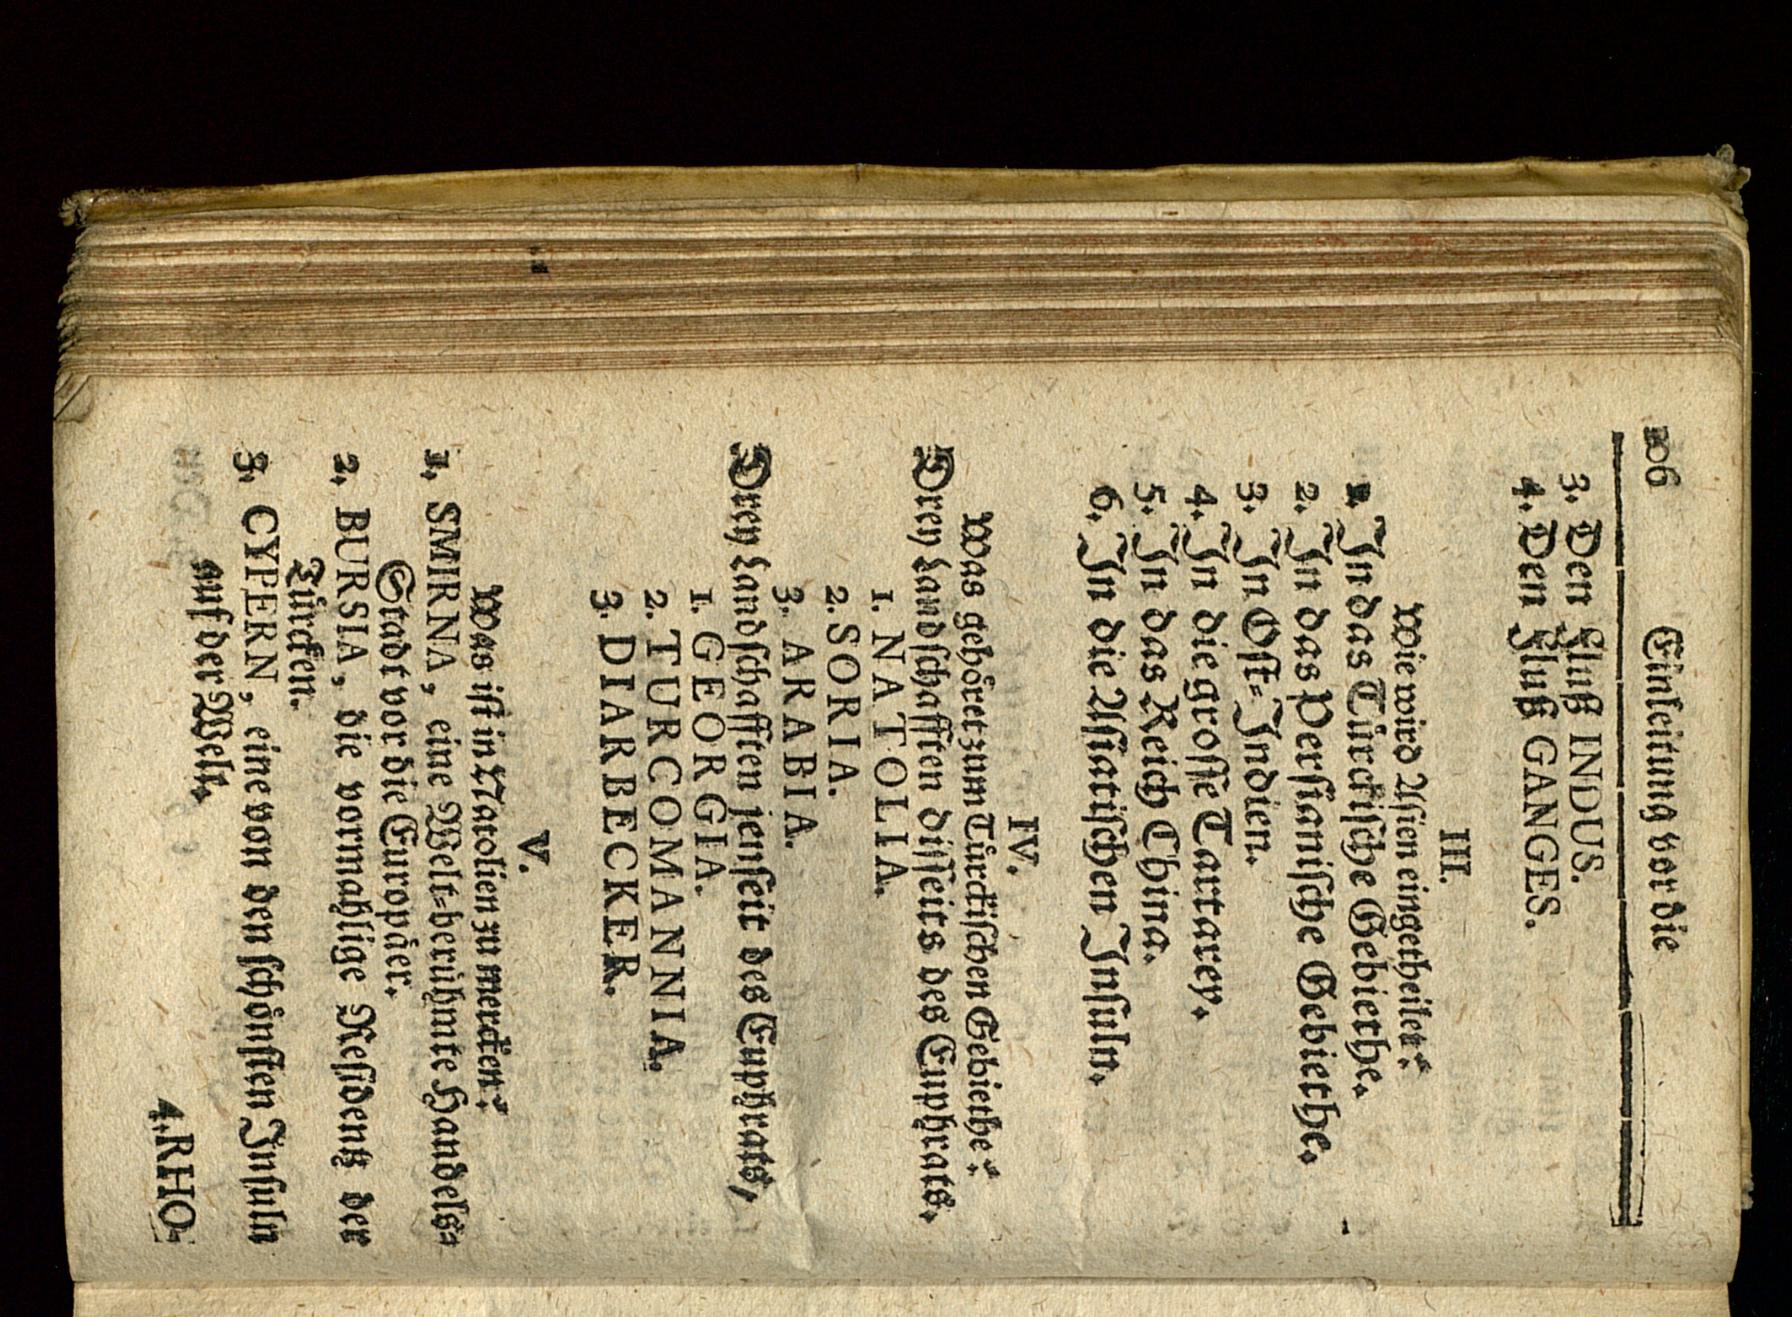 106 Einleitung vor die
3. Den Fluß INDUS.
4. Den Fluß GANGES.
III.
Wie wird Asien eingetheilet?
1. In das Türckische Gebiethe.
2. In das Persianische Gebiethe.
3. In Ost-Indien.
4. In die grosse Tartarey.
5. In das Reich China.
6. In die Asiatischen Insuln.
IV.
Was gehöret zum Türckischen Gebiethe?
Drey Landschafften disseits des Euphrats.
1. NATOLIA.
2. SORIA.
3. ARABIA.
Drey Landschafften jenseit des Euphrats,
1. GEORGIA.
2. TURCOMANNIA.
3. DIARBECKER.
V.
Was ist in Natolien zu mercken?
1. SMIRNA, eine Welt-berühmte Handels-
Stadt vor die Europäer.
2. BURSIA, die vormahlige Residentz der
Türcken.
3. CYPERN, eine von den schönsten Insuln
auf der Welt.
4. RHO-